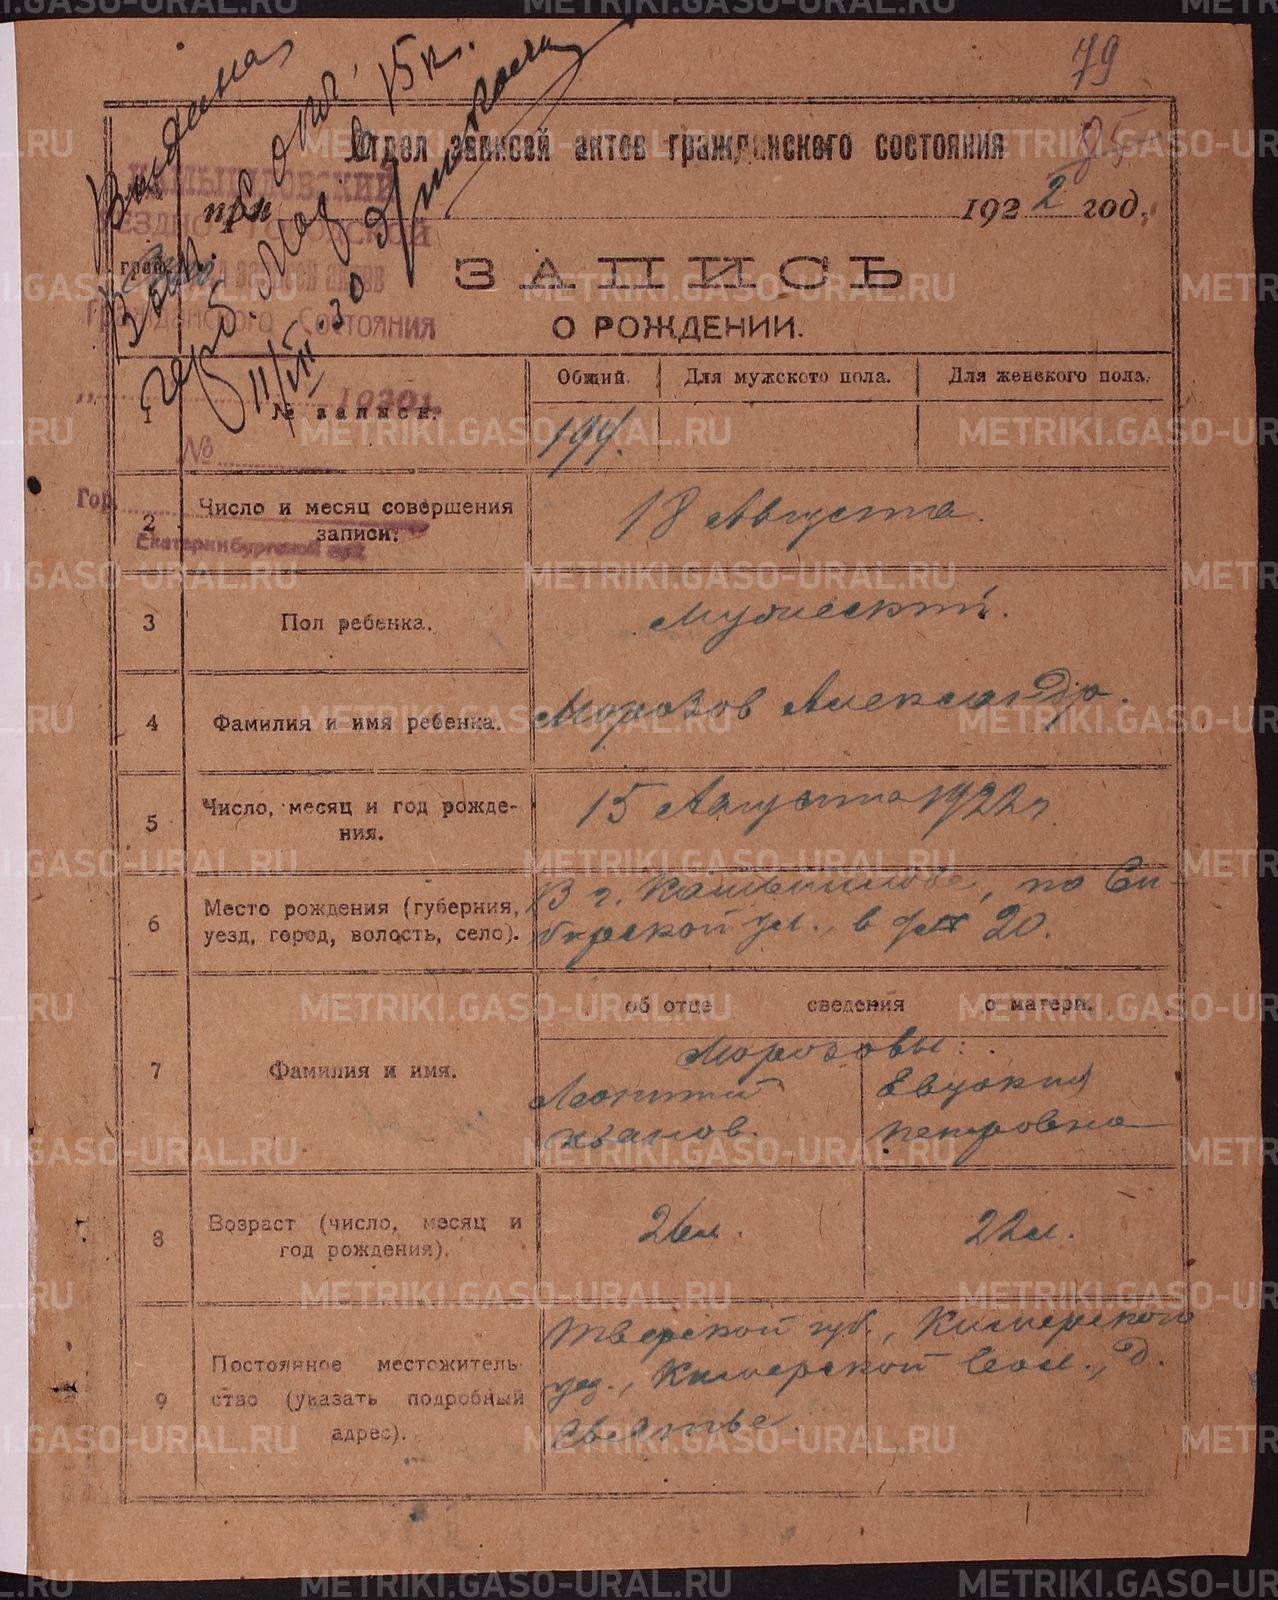 79
Выдана
15 к.
Отдел записей актов гражданского состояния
95
при
192 2 год.
КАМЫШЛОВСКИЙ
Гражданского Состояния
ЗАПИСЬ
О РОЖДЕНИИ.
11/VII 30
1
№ записи.
Общий.
Для мужского пола.
Для женского пола.
194.
1920 г.
№
Гор.
2
Число и месяц совершения
записи.
18 Августа.
Екатеринбургской губ.
3
Пол ребенка.
Мужеский.
4
Фамилия и имя ребенка.
Морозов Александр.
5
Число, месяц и год рожде-
ния.
15 Августа 1922 г.
6
Место рождения (губерния,
уезд, город, волость, село).
В г. Камышлове, по Си-
бирской ул., в д № 20.
об отце сведения о матери.
7
Фамилия и имя.
Морозовы:
Леонтий
Иванов.
Евдокия
Петровна
8
Возраст (число, месяц и
год рождения).
26 л.
22 л.
9
Постоянное местожитель-
ство (указать подробный
адрес).
Тверской губ., Кимерского
уез., Кимерской вол., д.